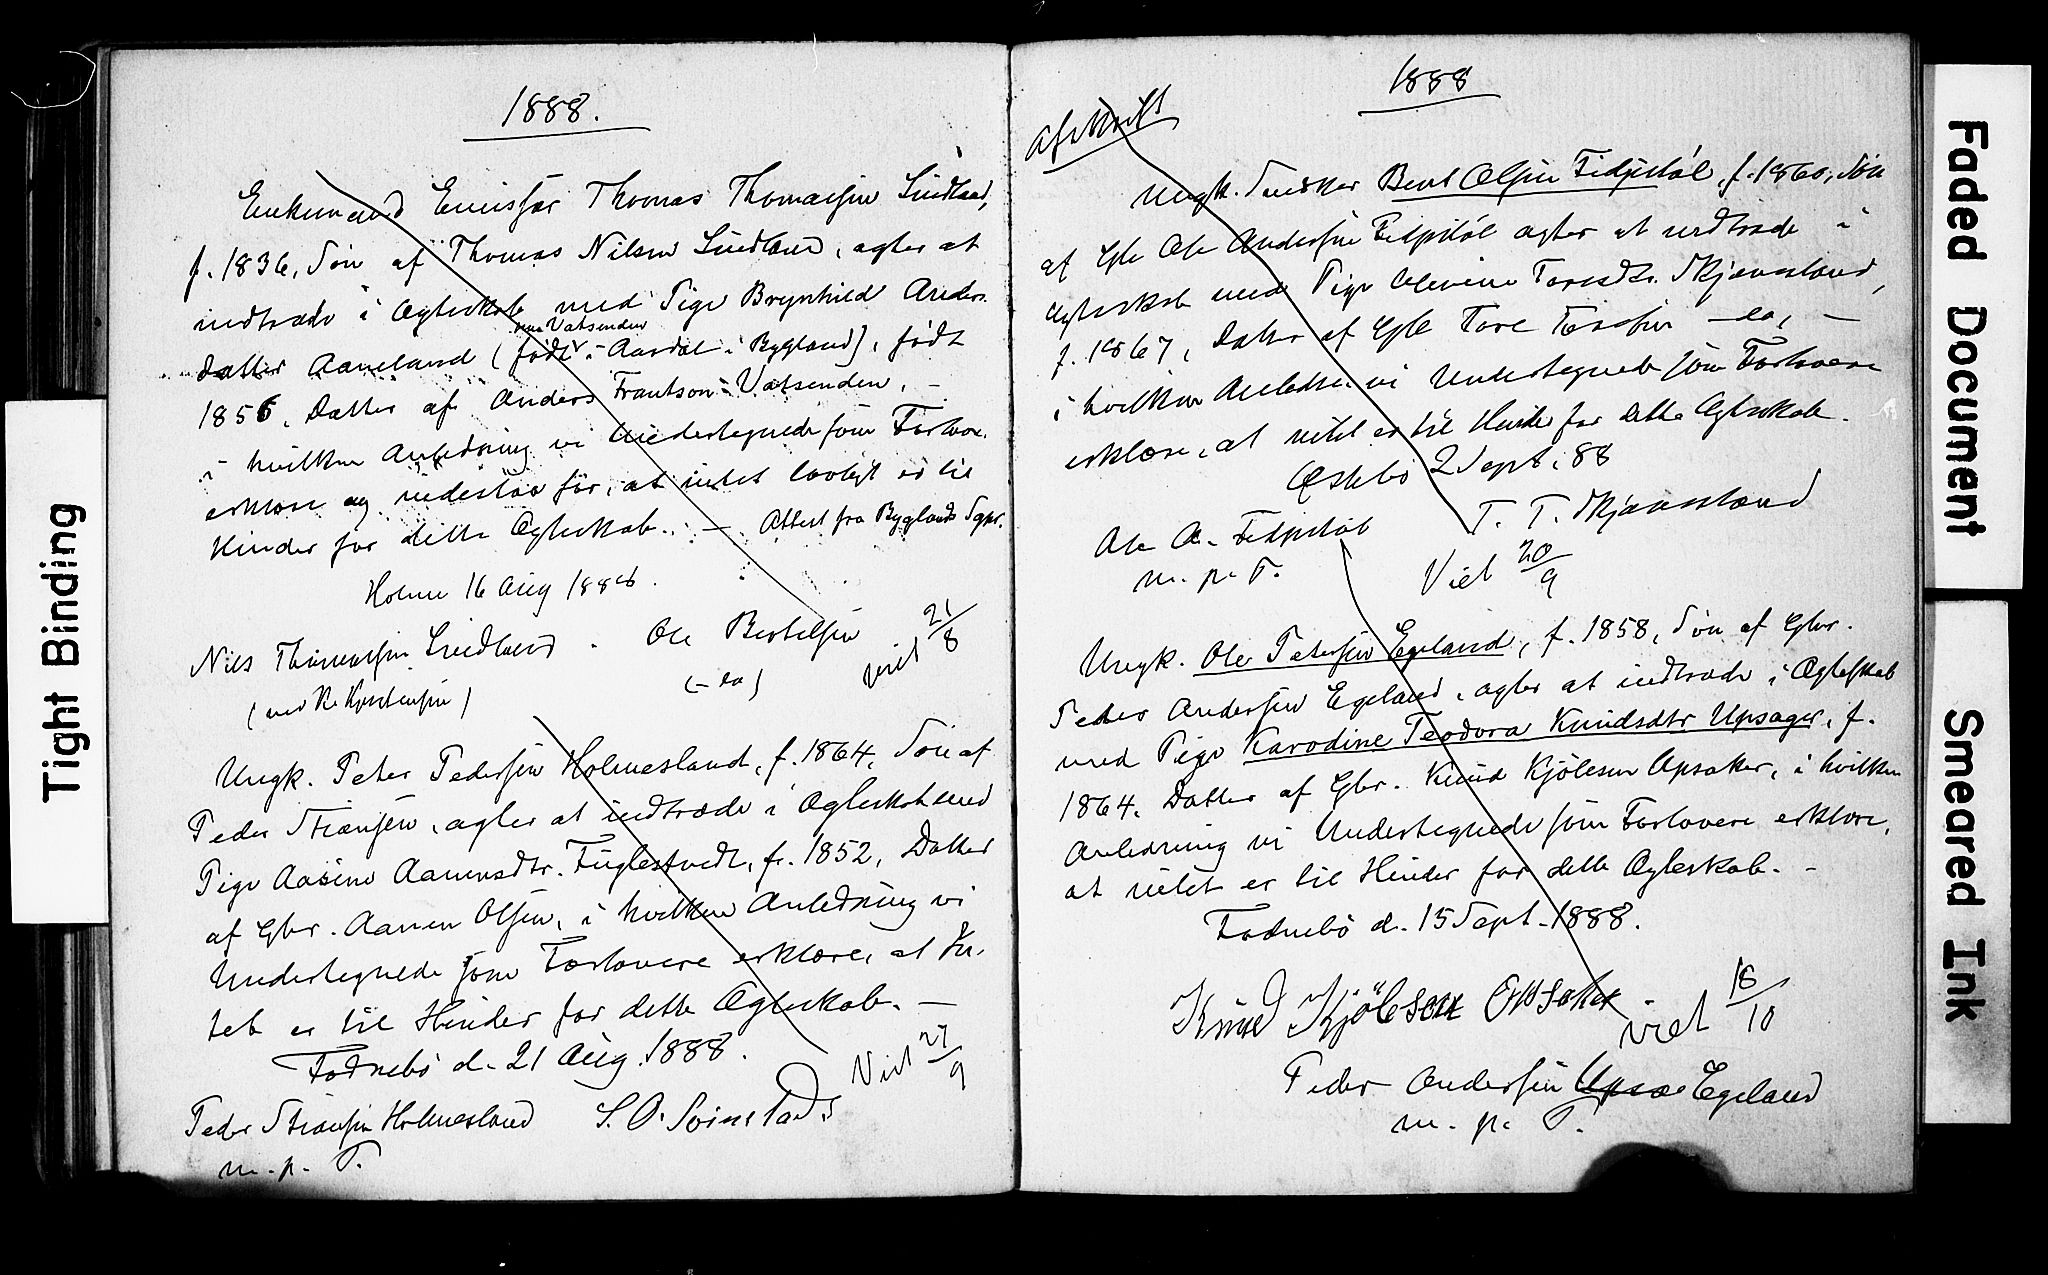 1888.
Enkemand Emisfær Thomas Thomassen Lindland,
f. 1836, Søn af Thomas Nilsen Lindland, agter at
indtræde i Ægteskab med Pige Brynhild Anders-
datter Aaneland (født i Aardal i Bygland), født
Vatsenden
1856, Datter af Anders Frantson Vatsenden, –
i hvilken Anledning vi Undertegnede som Forlove.
erklære og indestaa for, at intet lovligt er til
Hinder for dette Ægteskab. – Attest fra Byglands Sgpr.
Holum 16 Aug 1888.
Nils Thomassen Lindland. Ole Bertelsen viet 21/8
(– do)
Ungk. Peter Pedersen Holmesland, f. 1864, Søn af
Peder Stiansen, agter at indtræde i Ægteskab med
Pige Aasine Aanensdtr. Fuglestvedt, f. 1852, Datter
af Gbr. Aanen Olsen, i hvilken Anledning vi
Undertegnede som Forlovere erklære, at In-
tet er til Hinder for dette Ægteskab. –
Fodnebö d. 21 Aug. 1888.
Viet 27/9
Peder Stiansen Holmesland S. O. Svinstad
m. p. P.
1888
Afskrift
Ungk. Snedker Bent Olsen Fidjestøl, f. 1860, Søn
af Gbr Ole Andersen Fidjestøl agter at indtræde i
Ægteskab med Pige Olevine Toresdtr. Skjævesland,
f. 1867, Datter af Gbr Tore Tossen – do, –
i hvilken Anledn. vi Undertegnede som Forlovere
erklære, at intet er til Hinder for dette Ægteskab.
Øslebö 2 Sept. 88
Ole A. Fidjestøl T. T. Skjævesland
m. p. P.
Viet 20/9
Ungk. Ole Petersen Egeland, f. 1858, Søn af Gbr.
Peder Andersen Egeland, agter at indtræde i Ægteskab
med Pige Karodine Teodora Knudsdtr Upsager, f.
1864, Datter af Gbr. Knud Kjölesen Upsaker, i hvilken
Anledning vi Undertegnede som Forlovere erklære,
at intet er til Hinder for dette Ægteskab. –
Fodnebö d. 15 Sept. 1888.
Knud Kjöleson Opsaker
viet 18/10
Peder Andersen Upsa Egeland
m. p. P.
Tight Binding
Faded Document
Smeared Ink